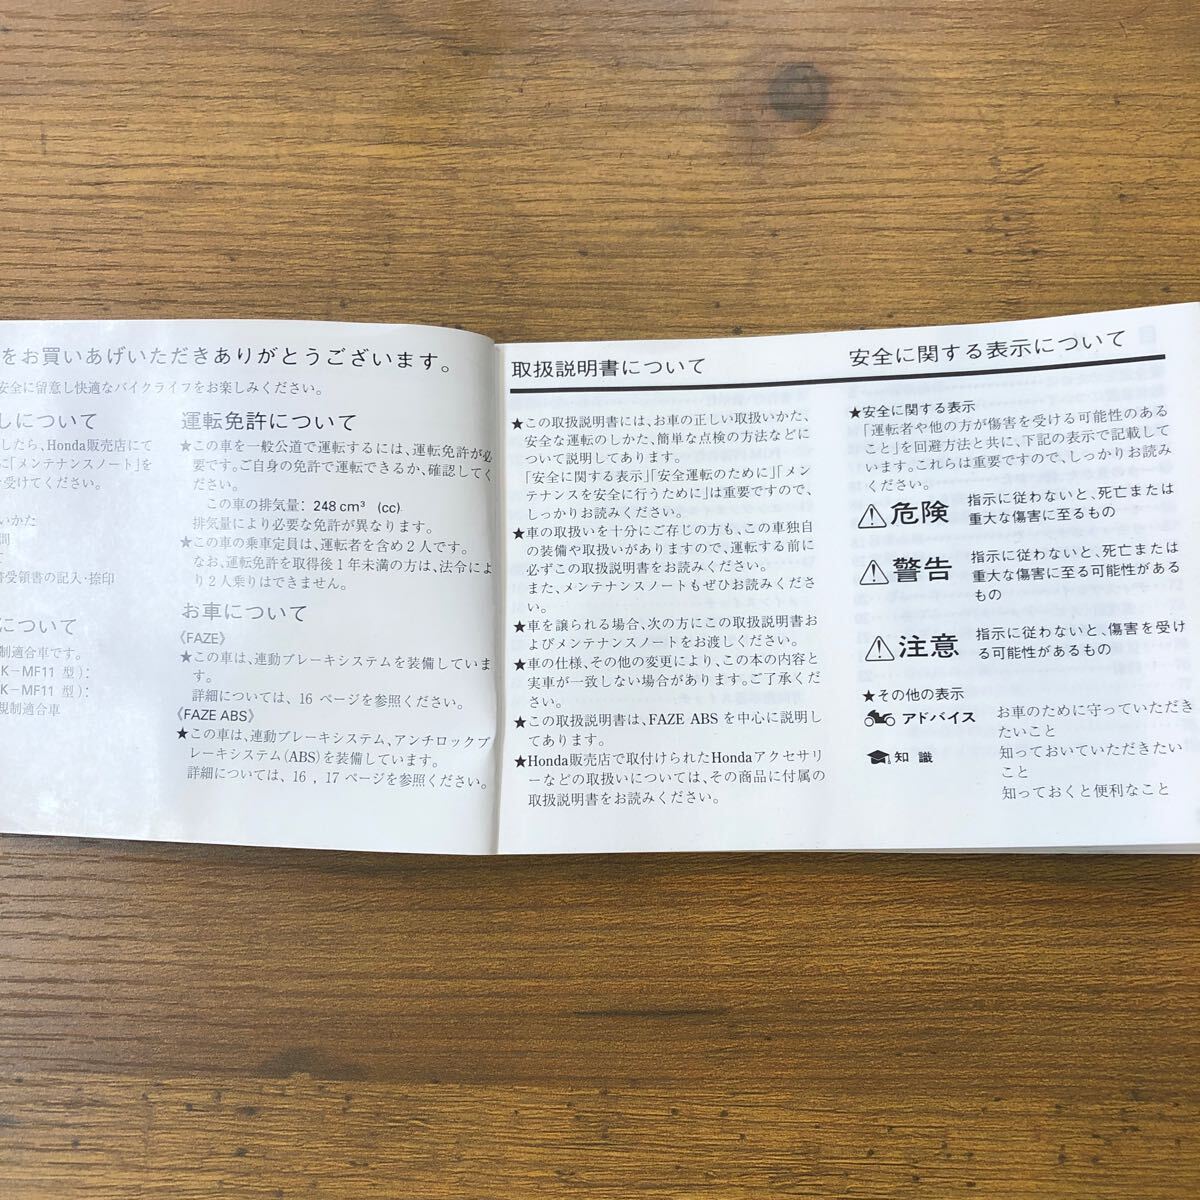 をお買いあげいただきありがとうございます。
安全に留意し快適なバイクライフをお楽しみください。
しについて
したら、Honda販売店にて
に「メンテナンスノート」を
受けてください。
いかた
間
書受領書の記入・捺印
について
制適合車です。
K−MF11 型）:
K−MF11 型）:
規制適合車
運転免許について
★この車を一般公道で運転するには、運転免許が必
要です。ご自身の免許で運転できるか、確認してく
ださい。
この車の排気量: 248 cm³ (cc)
排気量により必要な免許が異なります。
★この車の乗車定員は、運転者を含め2人です。
なお、運転免許を取得後1年未満の方は、法令によ
り2人乗りはできません。
お車について
《FAZE》
★この車は、連動ブレーキシステムを装備していま
す。
詳細については、16 ページを参照ください。
《FAZE ABS》
★この車は、連動ブレーキシステム、アンチロックブ
レーキシステム(ABS)を装備しています。
詳細については、16 , 17 ページを参照ください。
取扱説明書について
★この取扱説明書には、お車の正しい取扱いかた、
安全な運転のしかた、簡単な点検の方法などに
ついて説明してあります。
「安全に関する表示」「安全運転のために」「メン
テナンスを安全に行うために」は重要ですので、
しっかりお読みください。
★車の取扱いを十分にご存じの方も、この車独自
の装備や取扱いがありますので、運転する前に
必ずこの取扱説明書をお読みください。
また、メンテナンスノートもぜひお読みくださ
い。
★車を譲られる場合、次の方にこの取扱説明書お
よびメンテナンスノートをお渡しください。
★車の仕様、その他の変更により、この本の内容と
実車が一致しない場合があります。ご了承くだ
さい。
★この取扱説明書は、FAZE ABS を中心に説明し
てあります。
★Honda販売店で取付けられたHondaアクセサリ
ーなどの取扱いについては、その商品に付属の
取扱説明書をお読みください。
安全に関する表示について
★安全に関する表示
「運転者や他の方が傷害を受ける可能性のある
こと」を回避方法と共に、下記の表示で記載して
います。これらは重要ですので、しっかりお読み
ください。
危険
指示に従わないと、死亡または
重大な傷害に至るもの
警告
指示に従わないと、死亡または
重大な傷害に至る可能性がある
もの
注意
指示に従わないと、傷害を受け
る可能性があるもの
★その他の表示
アドバイス
お車のために守っていただき
たいこと
知識
知っておいていただきたい
こと
知っておくと便利なこと